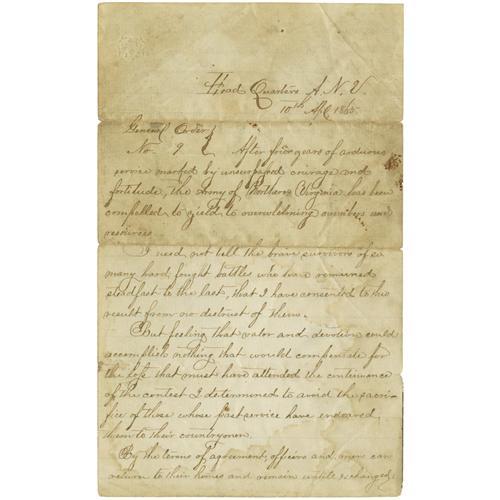 Head Quarters A. N. V.
10th Apl 1865.
General Order
No 9 After four years of arduous
service marked by unsurpassed courage and
fortitude, the Army of Northern Virginia has been
compelled to yield to overwhelming numbers and
resources
I need not tell the brave survivors of so
many hard fought battles who have remained
steadfast to the last, that I have consented to this
result from no distrust of them.
But feeling that valor and devotion could
accomplish nothing that would compensate for
the loss that must have attended the continuance
of the contest I determined to avoid the sacri-
fice of those whose past service have endeared
them to their countrymen.
By the terms of agreement, officers and men can
return to their homes and remain until exchanged